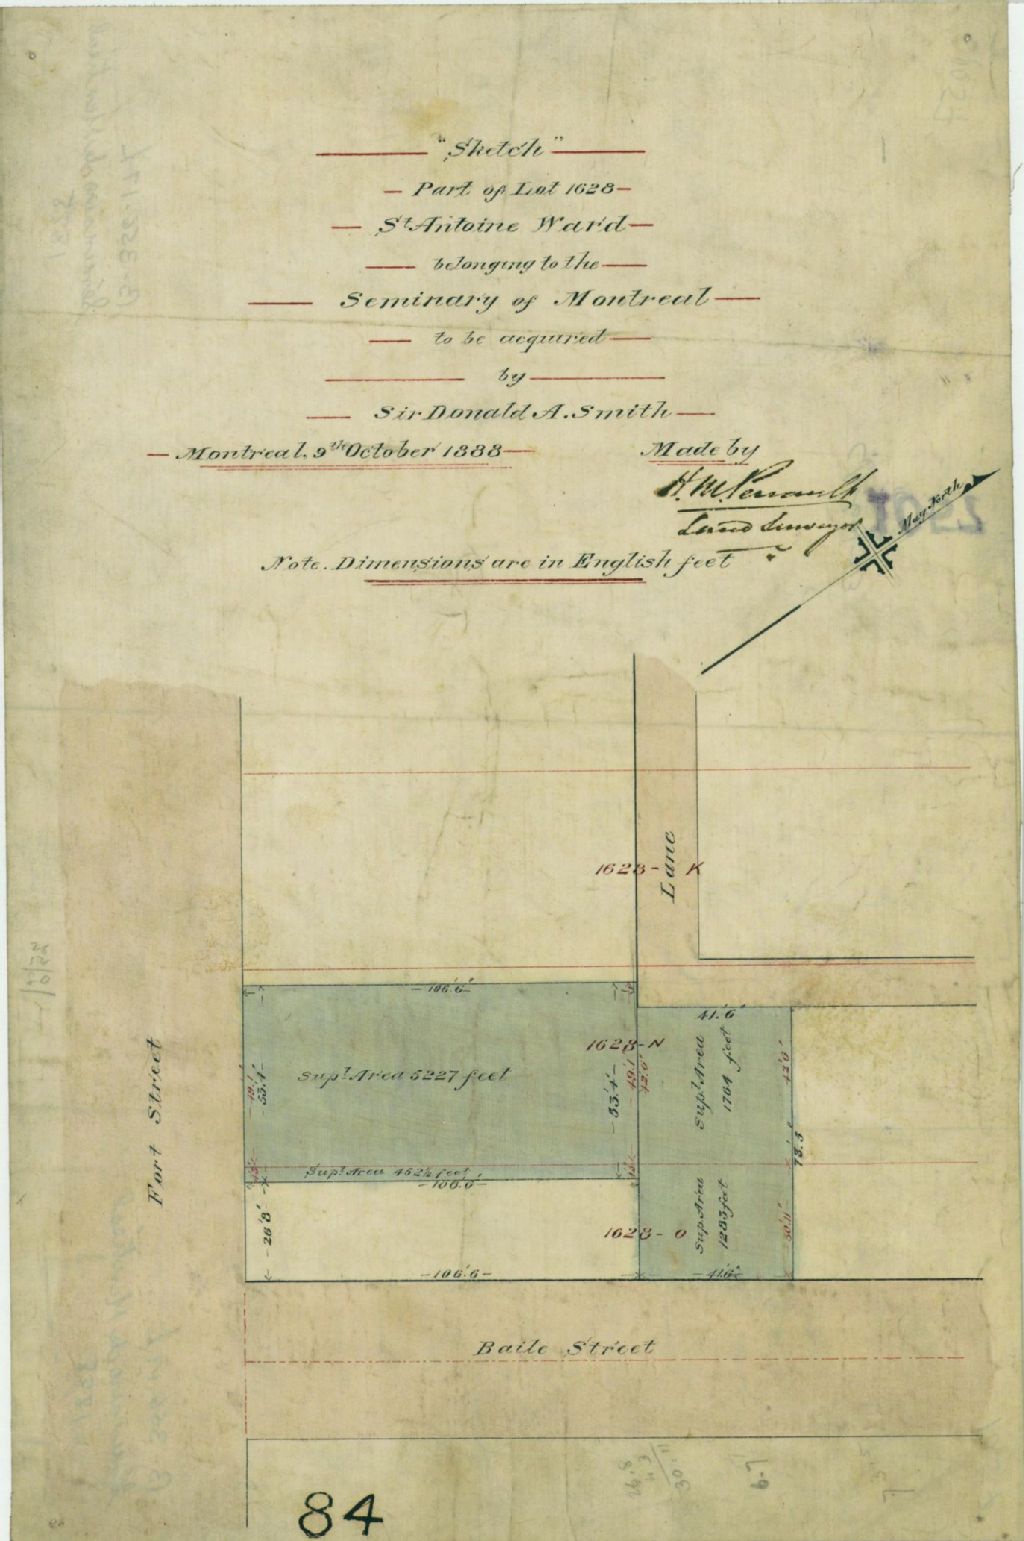 "Sketch"
Part of Lot 1628
St Antoine Ward
belonging to the
Seminary of Montreal
to be acquired
by
Sir Donald A. Smith
Montreal, 9th October 1888
Made by
H. M. Perrault
Land Surveyor
Mag. North
Note. Dimensions are in English feet
Lane
1628- K
106.6'
41.6'
1628-N
Supl. Area 5227 feet
Supl. Area
1764 feet
49.1'
53.4'
53.4'
49.1'
42.6'
73.5'
Supl. Area 452½ feet
106.6'
Fort Street
26'8'
1628- O
Supl. Area
1283 feet
30.11'
106.6
41.6'
Baile Street
26.8
30.11
6.7
84